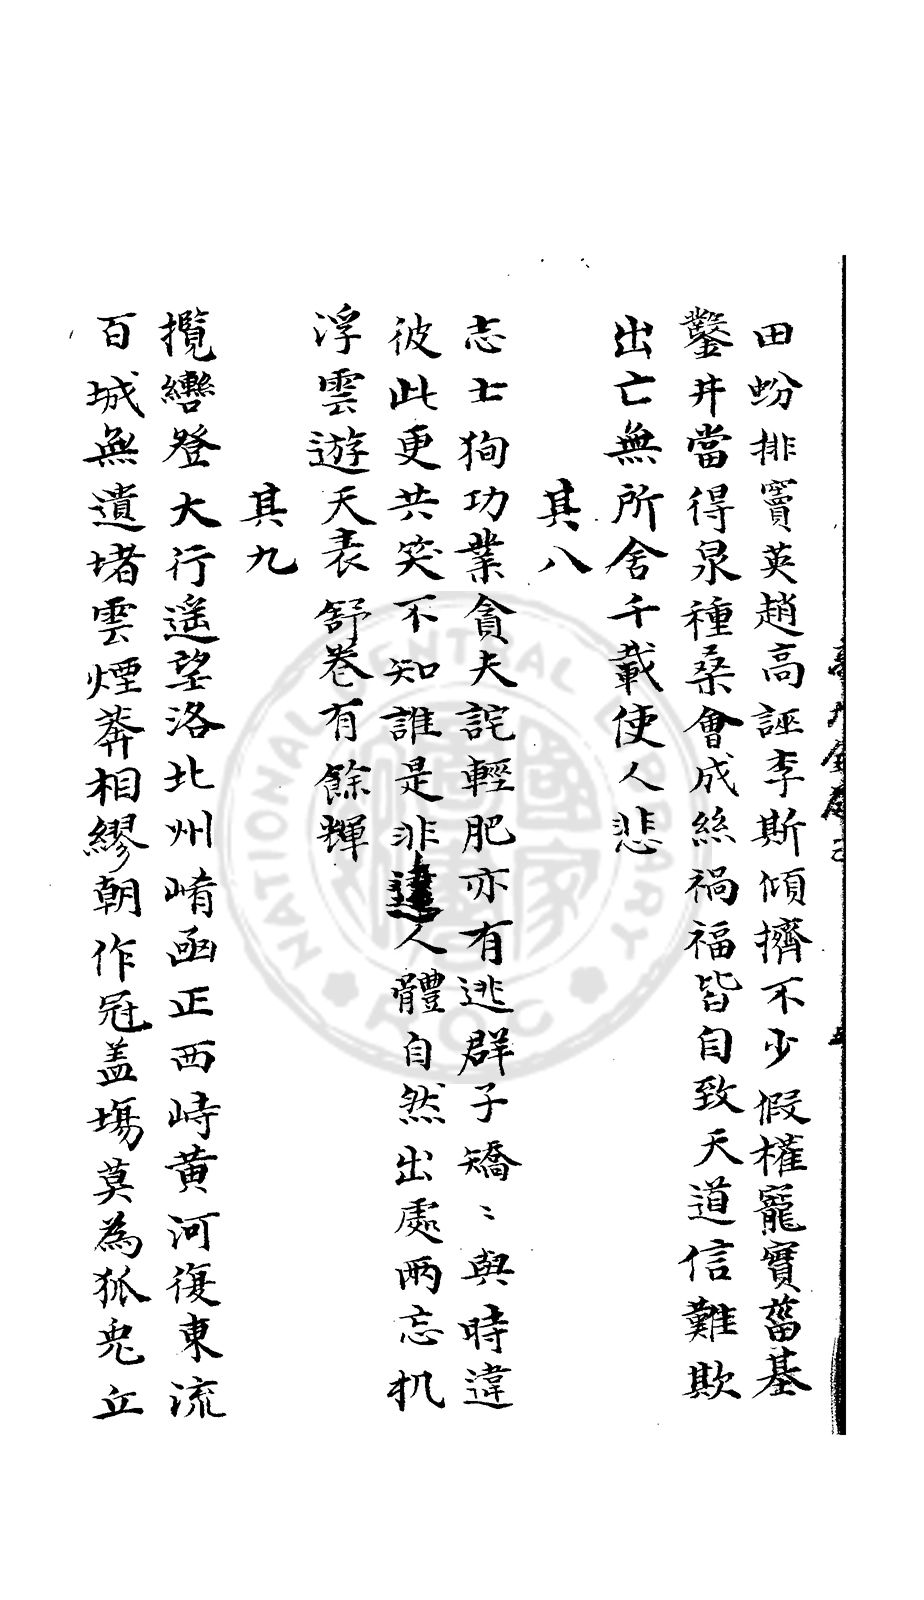 田蚡排竇英趙高誣李斯傾擠不少假權寵實菑基
鑿井當得泉種桑會成絲禍福皆自致天道信難欺
出亡無所舍千載使人悲
其八
志士狥功業貪夫詫輕肥亦有逃群子矯〻與時違
彼此更共笑不知誰是非達人體自然出處兩忘机
浮雲遊天表舒卷有餘輝
其九
攬轡登大行遥望洛北州崤函正西峙黄河復東流
百城無遺堵雲煙莽相繆朝作冠盖塲莫為狐兎丘
NATIONAL CENTRAL LIBRARY
ROC
國家圖書館